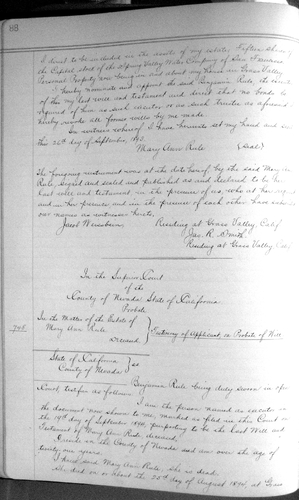 88
I direct to be included in the assets of my estate, fifteen shares of
the Capital stock of the Spring Valley Water Company of San Francisco
Personal Property now being in and about my home in Grass Valley.
I hereby nominate and appoint the said Benjamin Rule, the executor
of this my last will and testament and direct that no bonds be
required of him as such executor or as such trustee as aforesaid. I
hereby revoke all former wills by me made.
In witness whereof, I have hereunto set my hand and seal
this 28th day of September, 189
Mary Ann Rule (Seal)
The foregoing instrument was at the date hereof by the said Mary Ann
Rule, signed and sealed and published as and declared to be her
last will and testament in the presence of us, who at her request
and in her presence and in the presence of each other have subscribed
our names as witnesses hereto.
Jacob Weissbein Residing at Grass Valley, Calif
Jas. R. Smith,
Residing at Grass Valley, Cal
In the Superior Court
of the
County of Nevada, State of California
Probate
In the Matter of the Estate of
Mary Ann Rule
Deceased
Testimony of Applicant, in Probate of Will
State of California
County of Nevada ss
Benjamin Rule being duly sworn in open
Court, testifies as follows:
I am the person named as executor in
the document now shown to me, marked as filed in this Court on
the day of September 189, purporting to be the Last Will and
Testament of Mary Ann Rule, deceased,
I reside in the County of Nevada and am over the age of
twenty one years.
I knew said Mary Ann Rule. She is dead.
She died on or about the 28th day of August 189, at Grass